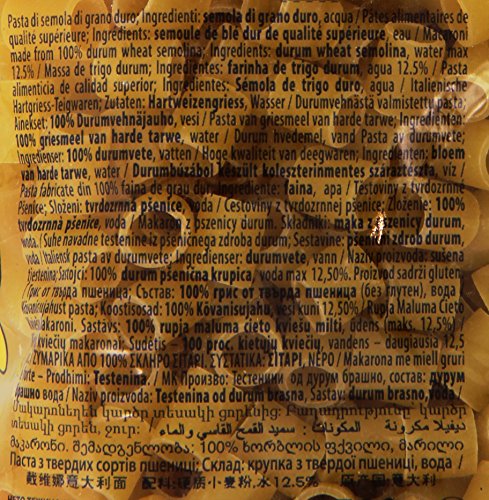 Pasta di semola di grano duro; Ingredienti: semola di grano duro, acqua / Pates alimentaires de
qualité supérieure; Ingrédients: semoule de blé dur de qualité supérieure, eau / Macaroni
made from 100% durum wheat semolina; Ingredients: durum wheat semolina, water max
12.5% / Massa de trigo durum; Ingredientes: farinha de trigo durum, agua 12.5% / Pasta
alimenticia de calidad superior; Ingredientes: Sémola de trigo duro, agua / Italienische
Hartgriess-Teigwaren; Zutaten: Hartweizengriess, Wasser / Durumvehnästä valmistettu pasta;
Ainekset: 100% Durumvehnäjauho, vesi / Pasta van griesmeel van harde tarwe; Ingredienten:
100% griesmeel van harde tarwe, water / Durum hvedemel, vand Pasta av durumvete;
Ingredienser: 100% durumvete, vatten / Hoge kwaliteit van deegwaren; Ingredienten: bloem
van harde tarwe, water / Durumbúzábol készült koleszterinmentes száraztészta, víz /
Pasta fabricate din 100% faina de grau dur Ingrediente: faina, apa / Těstoviny z tvrdozrnné
Pšenice; Složení: tvrdozrnná pšenice, voda / Cestoviny z tvrdozrnnej pšenice; Zloženie: 100%
tvrdozrnná pšenica, voda / Makaron z pszenicy durum. Składniki: mąka z pszenicy durum,
woda. / Suhe navadne testenine iz pšeničnega zdroba durum; Sestavine: pšenični zdrob durum,
voda / Italiensk pasta av durumvete; Ingredienser: durumvete, vann / Naziv proizvoda: sušena
tjestenina; Sastojci: 100% durum pšenična krupica, voda max 12,50%. Proizvod sadrži gluten
грис от твърда пшеница, Състав: 100% грис от твърда пшеница (без глутен), вода
Kõvanisujahust pasta; Koostisosad: 100% Kõvanisujahu, vesi kuni 12,50% / Rupja Maluma Cieto
makaroni. Sastāvs: 100% rupja maluma cieto kviešu milti, ūdens (maks. 12,5%) /
makaronai; Sudėtis - 100 proc. kietųjų kviečių, vandens - daugiausia 12,5
ΖΥΜΑΡΙΚΑ ΑΠΟ 100% ΣΚΛΗΡΟ ΣΙΤΑΡΙ, ΣΥΣΤΑΤΙΚΑ: ΣΙΤΑΡΙ, ΝΕΡΟ / Makarona me miell gruri
forte - Prodhimi: Testenina. / МК Производ: Тестенини од дурум брашно, состав: дурум
брашно вода / Naziv proizvoda: Testenina od durum brasna, Sastav: durum brasno, voda /
Մակարոնեղեն կարծր տեսակի ցորենից: Բաղադրությունը՝ կարծր
տեսակի ցորեն, ջուր: المكونات: سميد القمح القاسي والماء
მაკარონი. შემადგენლობა: 100% ხორბლის ფქვილი,
Паста з твердих сортів пшениці; Склад: крупка з твердої пшениці, вода /
意大利面 配料: 小麦粉, 水12.5% 原产国意大利